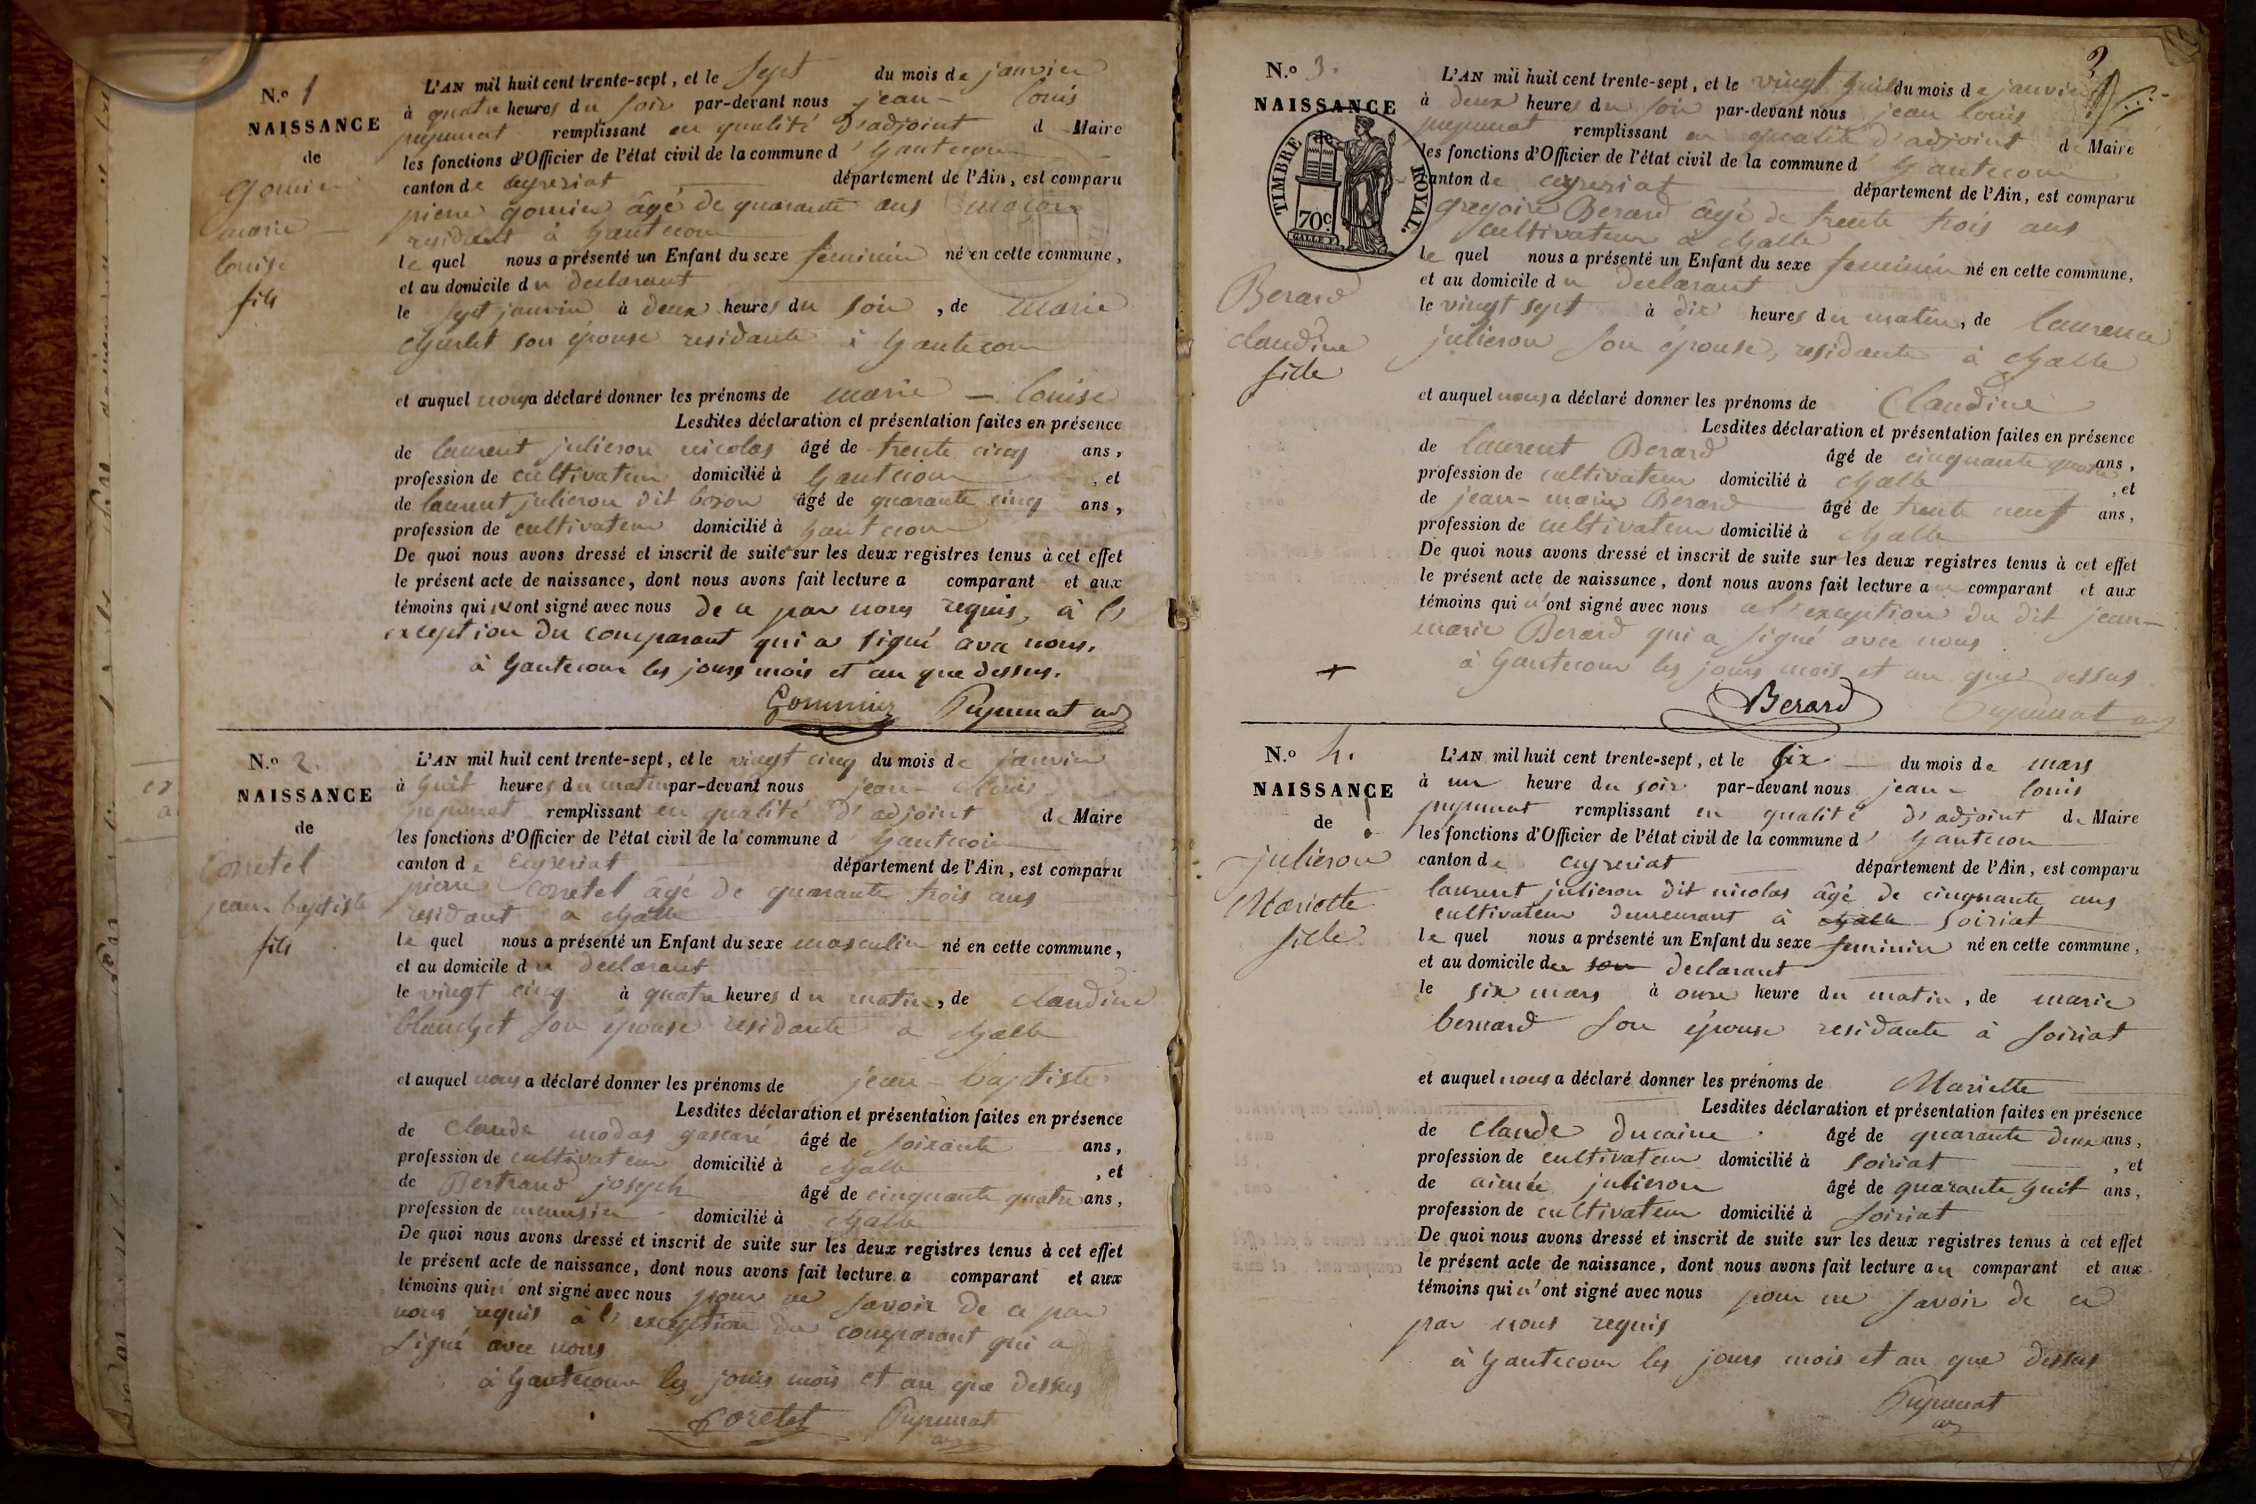 N.º 1
NAISSANCE
de
gomier
marie
louise
fils
L'AN mil huit cent trente-sept, et le sept du mois de janvier
à quatre heures du soir par-devant nous jean - louis
pupunat remplissant en qualité d'adjoint d Maire
les fonctions d'Officier de l'état civil de la commune d' hautecour
canton de ceyzeriat département de l'Ain, est comparu
pierre gomier âgé de quarante ans maçon
residant à hautecour
le quel nous a présenté un Enfant du sexe féminin né en cette commune,
et au domicile du declarant
le sept janvier à deux heures du soir, de marie
son épouse residante à hautecour
et auquel nous a déclaré donner les prénoms de marie - louise
Lesdites déclaration et présentation faites en présence
de laurent julieron nicolas âgé de trente cinq ans,
profession de cultivateur domicilié à hautecour, et
de laurent julieron dit bozon âgé de quarante cinq ans,
profession de cultivateur domicilié à hautecour
De quoi nous avons dressé et inscrit de suite sur les deux registres tenus à cet effet
le présent acte de naissance, dont nous avons fait lecture a comparant et aux
témoins qui n'ont signé avec nous de ce par nous requis, à l'
exception du comparant qui a signé avec nous.
à hautecour les jours mois et an que dessus.
Gommier Pupunat adj
N.º 2.
NAISSANCE
de
Corretel
jean-baptiste
fils
L'AN mil huit cent trente-sept, et le vingt cinq du mois de janvier
à huit heures du matin par-devant nous jean - louis
pupunat remplissant en qualité d'adjoint de Maire
les fonctions d'Officier de l'état civil de la commune d' hautecour
canton de ceyzeriat département de l'Ain, est comparu
pierre corretel âgé de quarante trois ans
residant a challe
le quel nous a présenté un Enfant du sexe masculin né en cette commune,
et au domicile du declarant
le vingt cinq à quatre heures du matin, de claudine
blanchet son épouse residante a challe
et auquel nous a déclaré donner les prénoms de jean - baptiste
Lesdites déclaration et présentation faites en présence
de claude âgé de soixante ans,
profession de cultivateur domicilié à challe, et
de Bertrand joseph âgé de cinquante quatre ans,
profession de menusier domicilié à challe
De quoi nous avons dressé et inscrit de suite sur les deux registres tenus à cet effet
le présent acte de naissance, dont nous avons fait lecture a comparant et aux
témoins qui n'ont signé avec nous pour ne savoir de ce par
nous requis à l'exception du comparant qui a
signé avec nous
à hautecour les jours mois et an que dessus
Coretel Pupunat
adj
2
N.º 3.
NAISSANCE
de
TIMBRE ROYAL.
70c.
Berard
claudine
fille
L'AN mil huit cent trente-sept, et le vingt huit du mois de janvier
à deux heures du soir par-devant nous jean louis
pupunat remplissant en qualité d'adjoint de Maire
les fonctions d'Officier de l'état civil de la commune d' hautecour
canton de ceyzeriat département de l'Ain, est comparu
gregoire Berard âgé de trente trois ans
cultivateur à challe
le quel nous a présenté un Enfant du sexe feminin né en cette commune,
et au domicile du declarant
le vingt sept à dix heures du matin, de laurence
julieron son épouse, residante à challe
et auquel nous a déclaré donner les prénoms de Claudine
Lesdites déclaration et présentation faites en présence
de laurent Berard âgé de cinquante quatre ans,
profession de cultivateur domicilié à challe, et
de jean-marie Berard âgé de trente neuf ans,
profession de cultivateur domicilié à challe
De quoi nous avons dressé et inscrit de suite sur les deux registres tenus à cet effet
le présent acte de naissance, dont nous avons fait lecture au comparant et aux
témoins qui n'ont signé avec nous a l'exception du dit jean-
marie Berard qui a signé avec nous
à hautecour les jours mois et an que dessus
Berard Pupunat adj
N.º 4.
NAISSANCE
de
julieron
Mariette
fille
L'AN mil huit cent trente-sept, et le six du mois de mars
à un heure du soir par-devant nous jean - louis
pupunat remplissant en qualité d'adjoint de Maire
les fonctions d'Officier de l'état civil de la commune d' hautecour
canton de ceyzeriat département de l'Ain, est comparu
laurent julieron dit nicolas âgé de cinquante ans
cultivateur demeurant à challe soiriat
le quel nous a présenté un Enfant du sexe feminin né en cette commune,
et au domicile du son declarant
le six mars à onze heure du matin, de marie
bernard son épouse residante à soiriat
et auquel nous a déclaré donner les prénoms de Mariette
Lesdites déclaration et présentation faites en présence
de claude ducaine âgé de quarante deux ans,
profession de cultivateur domicilié à soiriat, et
de aimée julieron âgé de quarante huit ans,
profession de cultivateur domicilié à soiriat
De quoi nous avons dressé et inscrit de suite sur les deux registres tenus à cet effet
le présent acte de naissance, dont nous avons fait lecture au comparant et aux
témoins qui n'ont signé avec nous pour ne savoir de ce
par nous requis
à hautecour les jours mois et an que dessus
Pupunat
adj